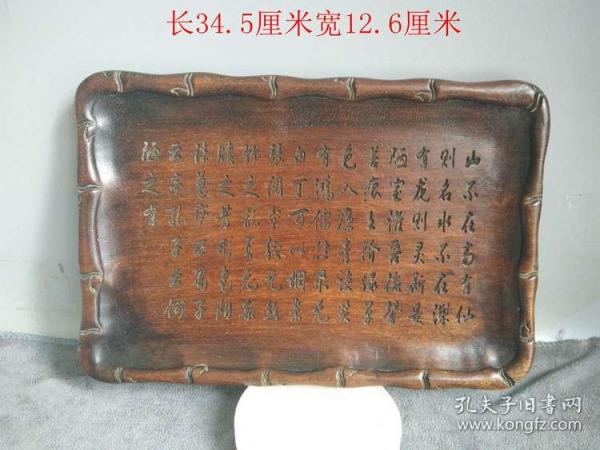 长34.5厘米宽12.6厘米
山不在高有仙
则名水不在深
有龙则灵斯是
陋室惟吾德馨
苔痕上阶绿草
色入帘青谈笑
有鸿儒往来无
白丁可以调素
琴阅金经无丝
竹之乱耳无案
牍之劳形南阳
诸葛庐西蜀子
云亭孔子云何
陋之有
孔夫子旧书网
www.kongfz.com